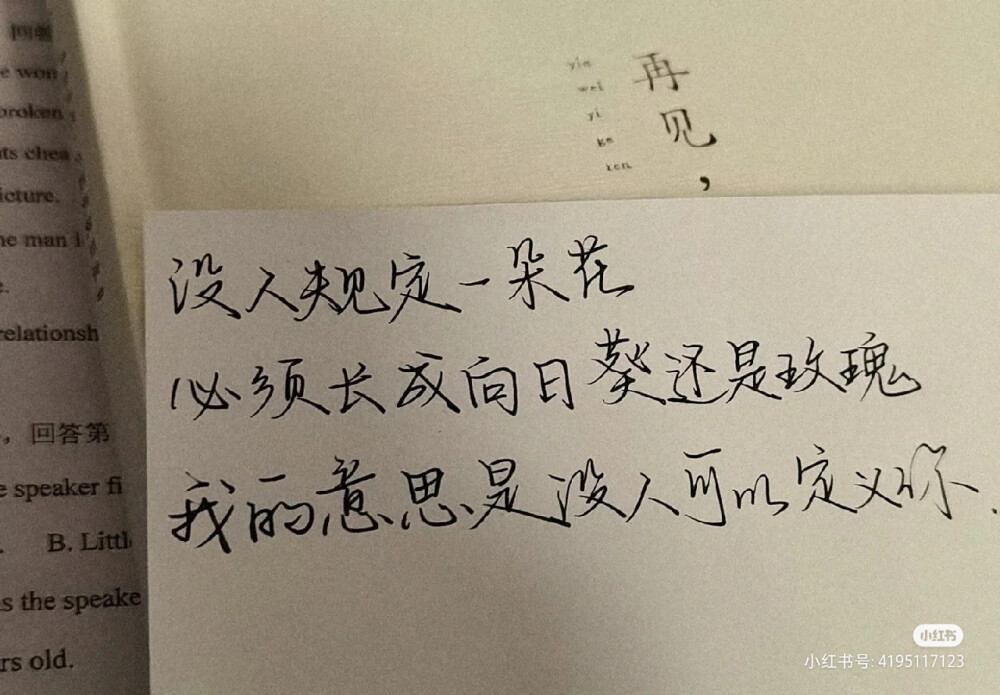 回答
e won
broken
ts chea
icture.
he man I
e.
relationsh
，回答第
e speaker fi
. B. Littl
s the speake
rs old.
再见，
yin
wei
yi
ge
ren
没人规定一朵花
必须长成向日葵还是玫瑰
我的意思是没人可以定义你.
小红书
小红书号: 4195117123